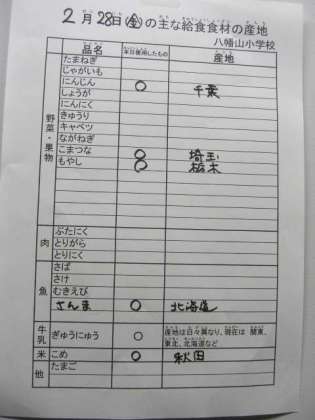 2月28日(金)の主な給食食材の産地
八幡山小学校
品名 本日使用したもの 産地
野菜・果物
たまねぎ
じゃがいも
にんじん ○ 千葉
しょうが
にんにく
きゅうり
キャベツ
ながねぎ
こまつな ○ 埼玉
もやし ○ 栃木
肉
ぶたにく
とりがら
とりにく
魚
さば
さけ
むきえび
さんま ○ 北海道
牛乳 ぎゅうにゅう ○ 産地は日々異なり、現在は 関東、
東北、北海道など
米 こめ ○ 秋田
他 たまご